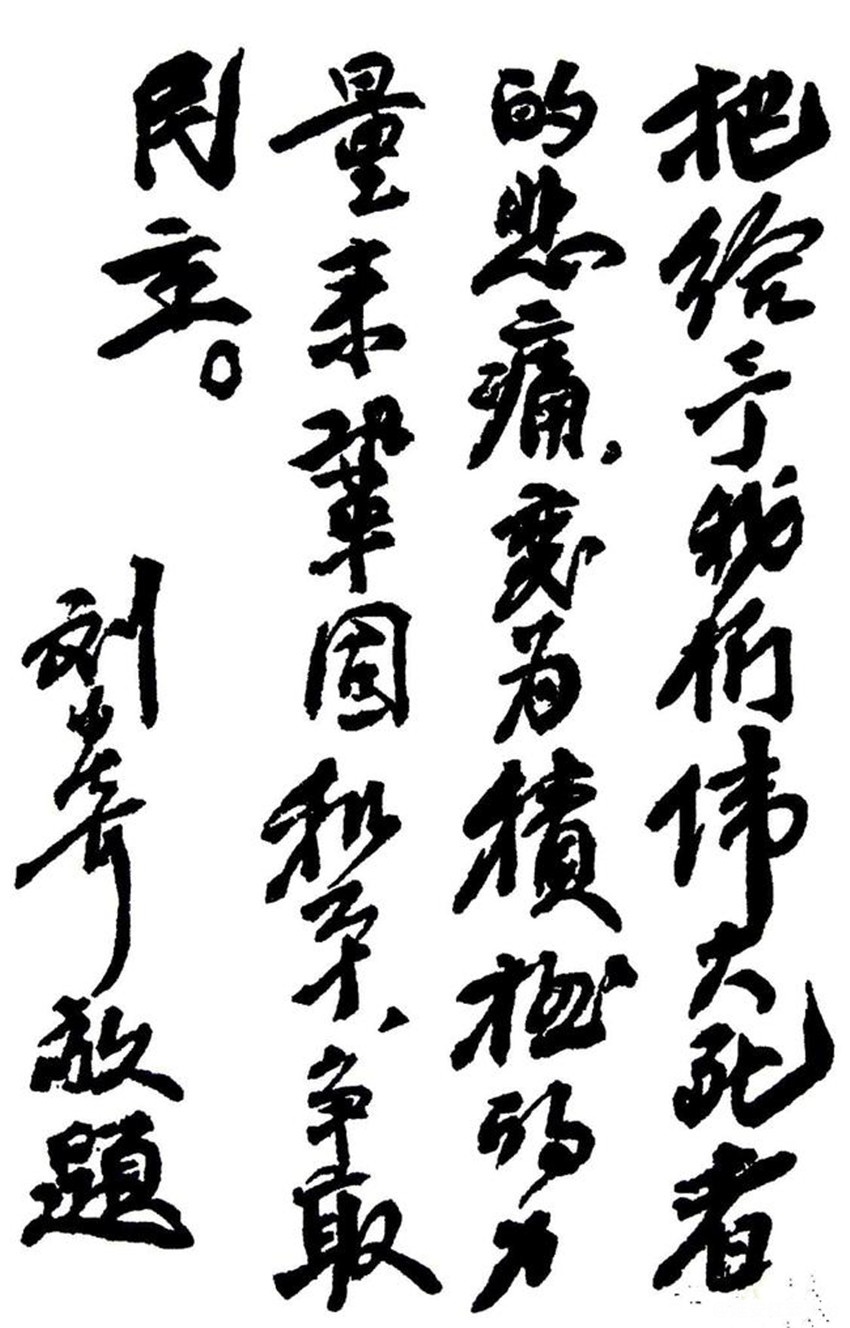 把给予我们伟大死者
的悲痛，变为積極的力
量来鞏固和平、争取
民主。
刘少奇敬題